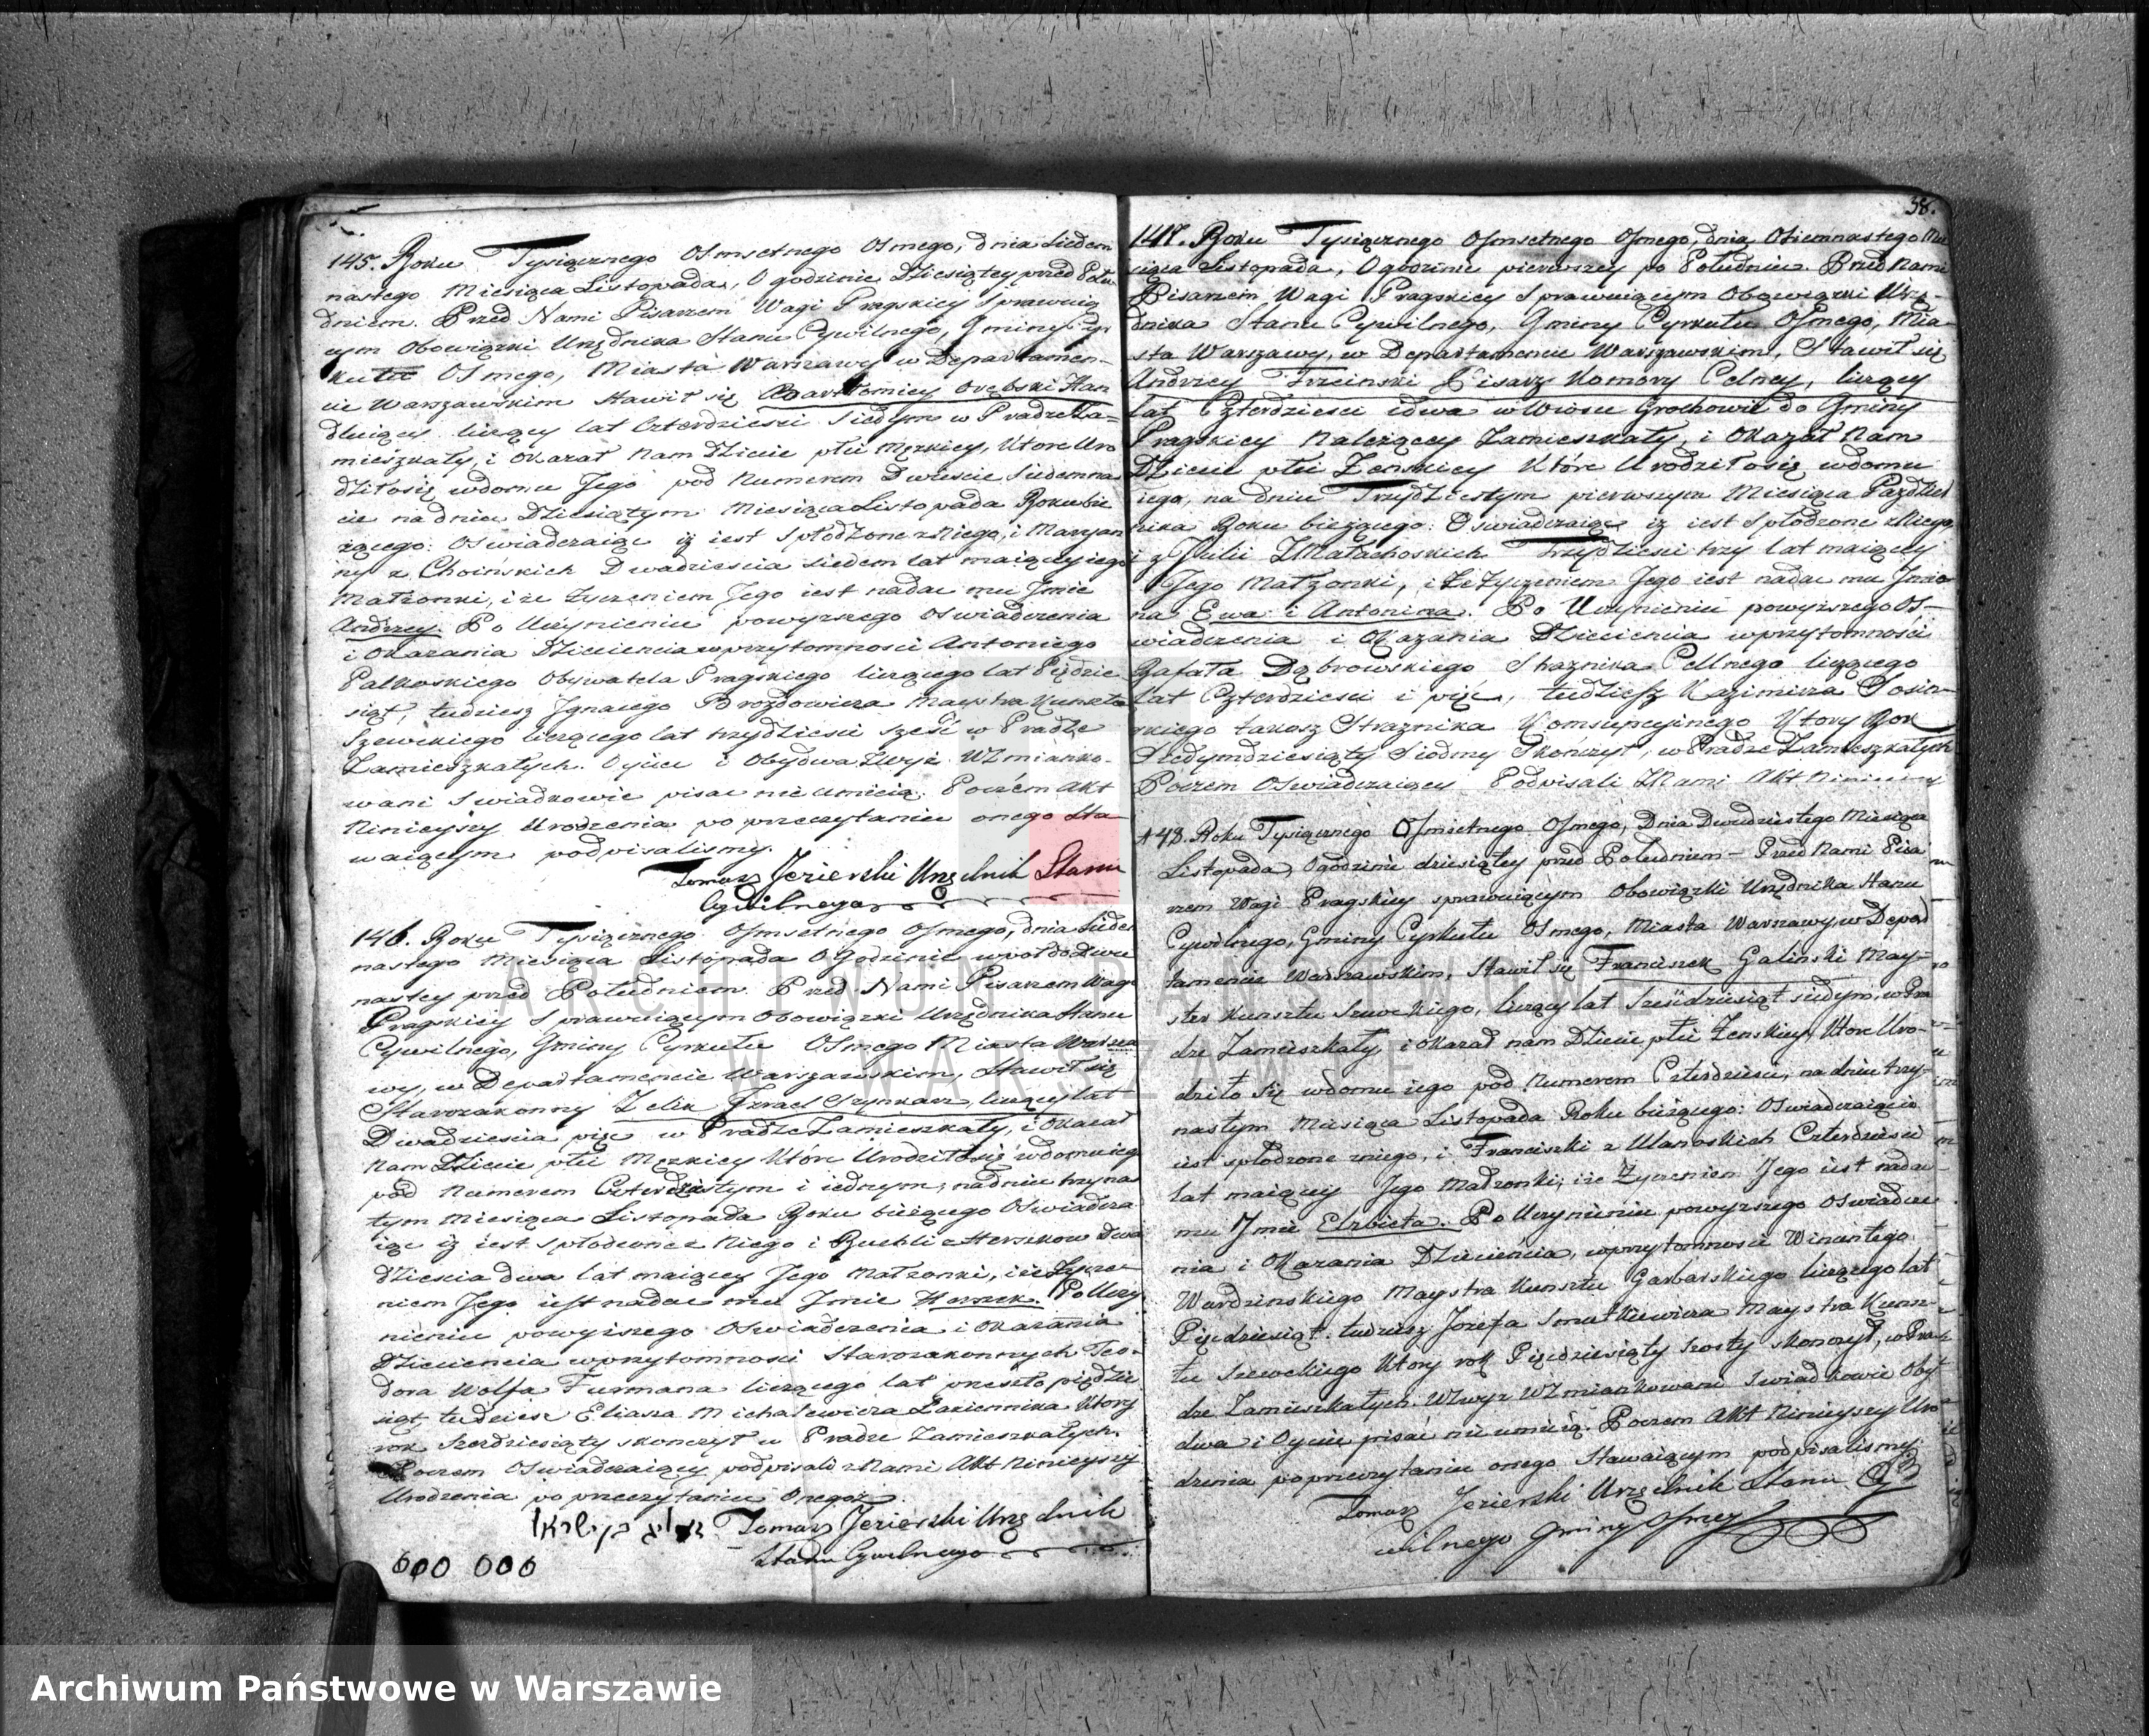 145. Roku Tysiącznego Osmsetnego Osmego, dnia siedem
nastego Miesiąca Listopada, O godzinie Dziesiątey przed Połu
dniem. Przed Nami Pisarzem Wagi Pragskiey Sprawuią
cym Obowiązki Urzędnika Stanu Cywilnego, Gminy Cyr
kułu Osmego, Miasta Warszawy w Departamen-
cie Warszawskim stawił się Bartłomiey Orębski Han
dluiący liczący lat Czterdziesci Siedym w Pradze Za-
mieszkały, i Okazał Nam Dziecie płci Męzkiey, które Uro
dziłosię wdomu Jego pod Numerem Dwieście Siedemna
cie na dniu Dziesiątym Miesiąca Listopada Roku bie
żącego: Oswiadczaiąc iż iest Spłodzone z Niego, i Maryan
ny z Choińskich Dwadziescia siedem lat maiącey iego
Małżonki, i że życzeniem Jego iest nadac mu Jmie
Andrzey. Po Uczynieniu powyższego Oswiadczenia
i Okazania Dzieciencia wprzytomnosci Antoniego
Palkoskiego Obywatela Pragskiego liczącego lat Pięćdzie
siąt, tudziesz Jgnacego Brozdowicza Maystra Kunsztu
Szewckiego liczącego lat trzydziesci sześć w Pradze
Zamieszkałych. Oyciec i Obydwa Zwyż Wzmianko-
wani Swiadkowie pisac nie umieią. Poczém Akt
Ninieyszy Urodzenia po przeczytaniu onego Sta-
waiącym podpisalismy.
Tomasz Jezierski Urzędnik Stanu
Cywilnego
146. Roku Tysiącznego Osmsetnego Osmego, dnia Siedem
nastego Miesiąca Listopada O Godzinie wpoł do Dwu
nastey przed Południem. Przed Nami Pisarzem Wagi
Pragskiey Sprawuiącym Obowiązki Urzędnika Stanu
Cywilnego, Gminy Cyrkułu Osmego Miasta Warsza
wy, w Departamencie Warszawskim, Stawił się
Starozakonny Zelik Jzrael Szynkarz, liczący lat
Dwadziescia pięc w Pradze Zamieszkały, i Okazał
Nam Dziecie płci Męzkiey Które Urodziłosię wdomu ieg
pod Numerem Czterdziestym i iednym, na dniu trzynas
tym Miesiąca Listopada Roku bieżącego Oswiadcza
iąc iż iest spłodzone z Niego i Ruchli z Herszkow Dwa
dziescia dwa lat maiącey Jego Małżonki, i że życze-
niem Jego iest nadac mu Jmie Herszek. Po Uczy
nieniu powyższego Oswiadczenia i Okazania
Dzieciencia wprzytomnosci Starozakonnych Teo-
dora Wolfa Furmana liczącego lat preszło pięćdzie
siąt tudziesz Eliasza Michalewicza Łaziennika Ktory
rok Szescdziesiąty skonczył w Pradze Zamieszkałych.
Poczem Oswiadczaiący podpisali z Nami Akt Ninieyszy
Urodzenia po przeczytaniu Onegoż
Tomasz Jezierski Urzędnik
Stanu Cywilnego
000 000
58.
147. Roku Tysiącznego Osmsetnego Osmego, dnia Osiemnastego Mie
siąca Listopada, O godzinie pierwszey po Południu. Przed Nami
Pisarzem Wagi Pragskiey Sprawuiącym Obowiązki Urzę-
dnika Stanu Cywilnego, Gminy Cyrkułu Osmego, Mia-
sta Warszawy, w Departamencie Warszawskim, Stawił się
Andrzey Trzcinski Pisarz Komory Celney, liczący
lat Czterdziesci idwa w Wiosce Grochowie do Gminy
Pragskiey Należącey Zamieszkały, i Okazał Nam
Dziecie płci Żenskiey Które Urodziłosię wdomu
iego, na dniu Trzydziestym pierwszym Miesiąca Pazdzier
nika Roku bieżącego: Oswiadczaiąc iż iest Spłodzone z Niego,
i z Julii z Małachoskich Trzydziesci trzy lat maiącey
Jego Małżonki, i że Życzeniem Jego iest nadac mu Jmio
na Ewa i Antonina. Po Uczynieniu powyższego Os-
wiadczenia i Okazania Dzieciencia wprzytomności
Rafała Dąbrowskiego Strażnika Cellnego liczącego
lat Czterdziesci i pięć, tudziesz Kazimirza Sosin-
skiego takosz Strażnika Komsupcyinego Ktory Rok
Siedymdziesiąty Siodmy Skończył, w Pradze Zamieszkałych
Poczem Oswiadczaiący Podpisali z Nami Akt Ninieyszy
148. Roku Tysiącznego Osmsetnego Osmego, Dnia Dwudziestego Miesiąca
Listopada, O godzinie dziesiątey przed Południem – Przed Nami Pisa
rzem Wagi Pragskiey sprawuiącym Obowiązki Urzędnika Stanu
Cywilnego, Gminy Cyrkułu Osmego, Miasta Warszawy, w Depar
tamencie Warszawskim, Stawił się Franciszek Galinski May-
ster Kunsztu Szewckiego, liczący lat Szescdziesiąt siedym, w Pra
dze Zamieszkały, i Okazał nam Dziecie płci Żenskiey, Ktore Uro-
dziło się wdomu iego pod Numerem Czterdziesci, na dniu trzy-
nastym Miesiąca Listopada Roku bieżącego: Oswiadczaiąc iż
iest spłodzone zniego, i Franciszki z Ulanoskich Czterdziesci
lat maiącey Jego Małżonki, i że Życzeniem Jego iest nadac
mu Jmie Elżbieta. Po Uczynieniu powyższego Oswiadcze
nia i Okazania Dziecięcia, wprzytomnosci Wincentego
Wardzinskiego Maystra Kunsztu Garbarskiego liczącego lat
Pięcdziesiąt. tudziesz Jozefa Smutkiewicza Maystra Kunsz-
tu Szewckiego Ktory rok Pięcdziesiąty szosty skonczył, w Pra-
dze Zamieszkałych. Wzwyż Wzmiankowani Swiadkowie Oby
dwa i Oyciec pisać nie umieią. Poczem Akt Ninieyszy Uro
dzenia po przeczytaniu onego Stawaiącym podpisalismy
Tomasz Jezierski Urzędnik Stanu Cy
wilnego Gminy Osmey
ARCHIWUM PAŃSTWOWE
W WARSZAWIE
Archiwum Państwowe w Warszawie